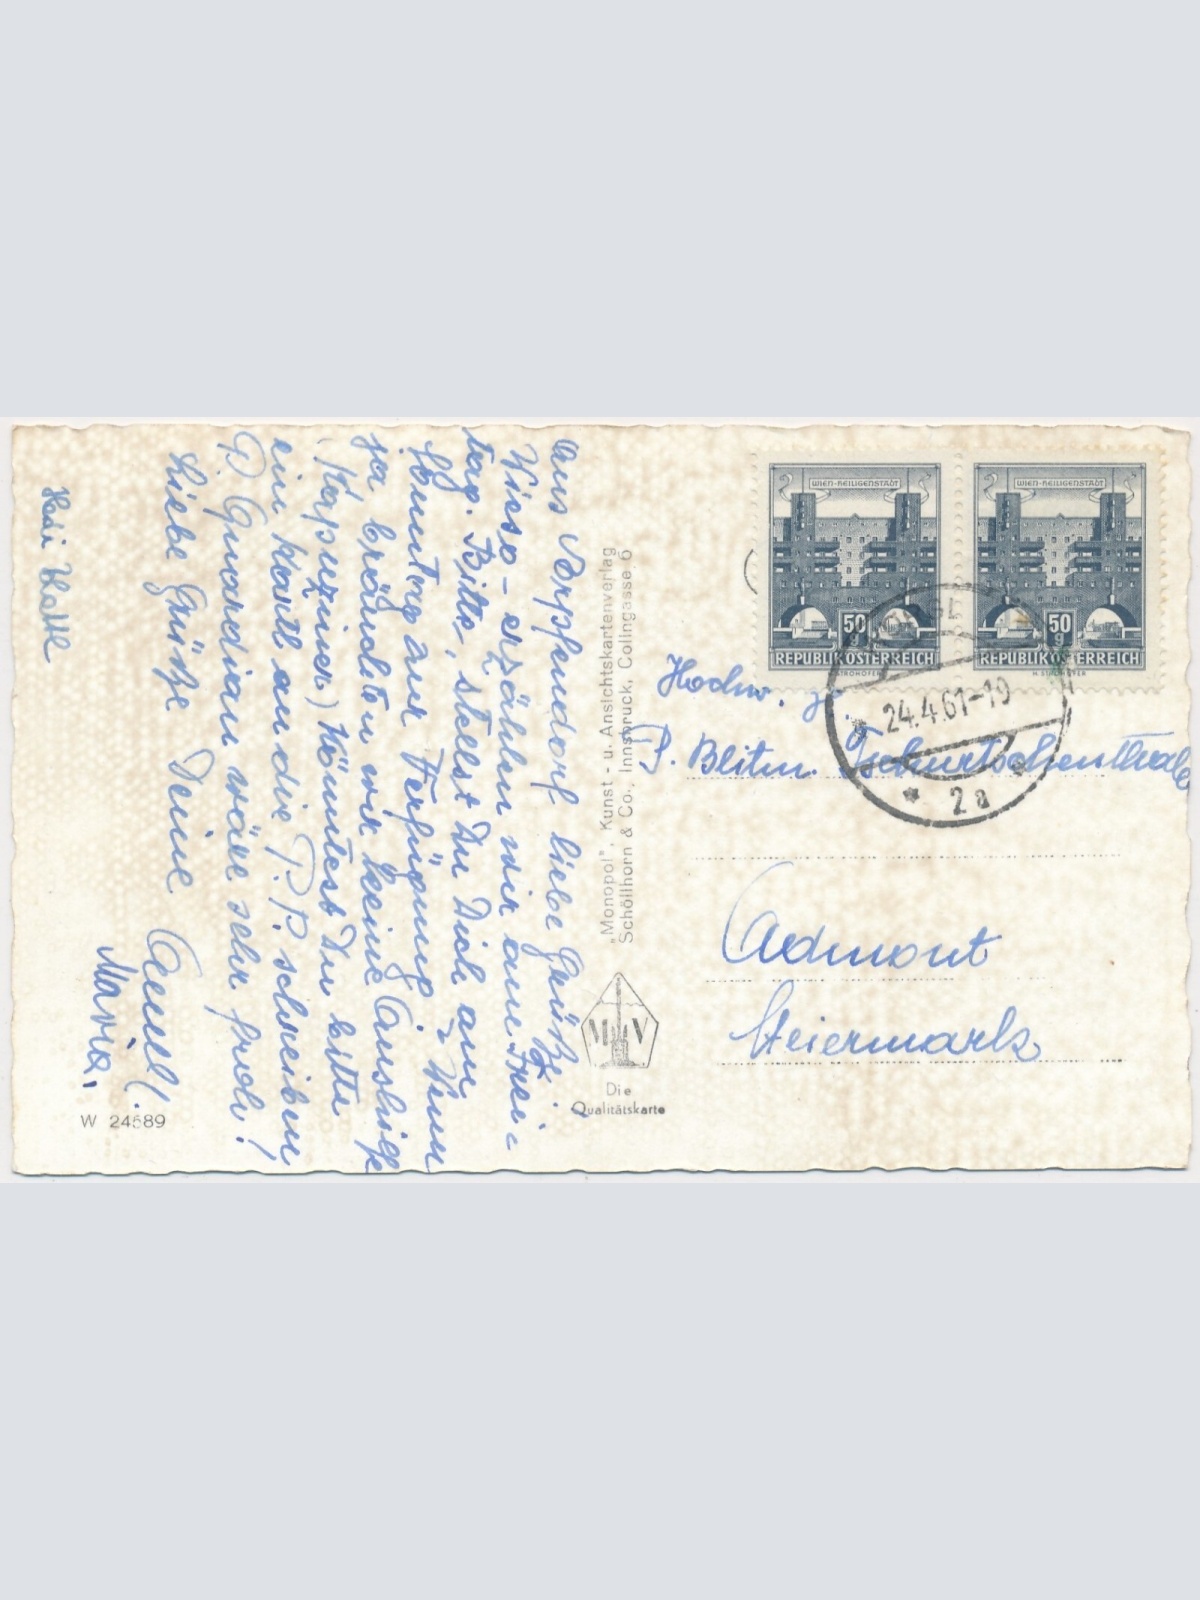 Aus Vorpfendorf liebe Grüße.
Wieso – erzählen wir am Frei=
tag. Bitte, stellst Du Dich am
Sonntag zur Verfügung? Denn
ja bräuchten wir keine Aushilfe
(Kapuziner) Könntest Du bitte
ein Kartl an die P.P. schreiben!
P. Guardian wäre sehr froh!
Liebe Grüße Deine
Maria.
"Monopol", Kunst- u. Ansichtskartenverlag
Schöllhorn & Co., Innsbruck, Collingasse 6
M V
Die
Qualitätskarte
W 24589
WIEN-HEILIGENSTADT
50 g
REPUBLIK ÖSTERREICH
WIEN-HEILIGENSTADT
50 g
REPUBLIK ÖSTERREICH
24.4.61-19
* 2a *
Hochw.
P. Tschurtschenthaler
Admont
Steiermark